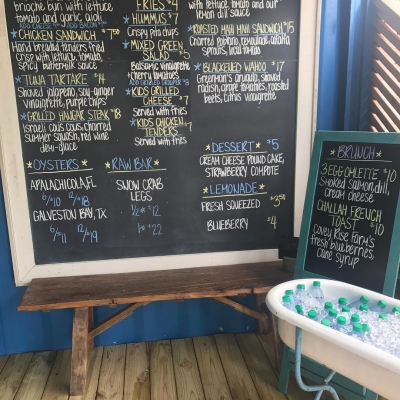 brioche bun with lettuce,
tomato and garlic aioli
*CHICKEN SANDWICH *7.50
Hand breaded tenders fried
Crisp with lettuce, tomato,
Spicy buttermilk sauce
*TUNA TARTARE $14
Shaved jalapeno, soy-ginger
vinaigrette, purple chips
*GRILLED HANGAR STEAK $18
Israeli cous cous, charred
Summer Squash, red wine
demi-glace
*OYSTERS*
APALACHICOLA, FL
6/$10 12/$18
GALVESTON BAY, TX
6/$11 12/$19
FRIES $4
*HUMMUS $7
Crispy pita chips
*MIXED GREEN
SALAD $5
Balsamic vinaigrette
cherry tomatoes
*KIDS GRILLED
CHEESE $7
Served with fries
*KIDS CHICKEN
TENDERS $7
Served with fries
*RAW BAR*
SNOW CRAB
LEGS
1/2# $12
1# $22
with lettuce, tomato and our
lemon dill sauce
*ROASTED MAHI MAHI SANDWICH $15
Charred poblano remoulade, alfalfa
sprouts, local tomato
*BLACKENED WAHOO $17
arugula, shaved
radish, grape tomatoes, roasted
beets, citrus vinaigrette
*DESSERT* $5
CREAM CHEESE POUND CAKE,
STRAWBERRY COMPOTE
*LEMONADE*
FRESH SQUEEZED $3.50
BLUEBERRY $4
*BRUNCH*
3 EGG OMLETTE $10
Smoked salmon, dill,
cream cheese
CHALLAH FRENCH
TOAST $10
fresh blueberries,
cane syrup